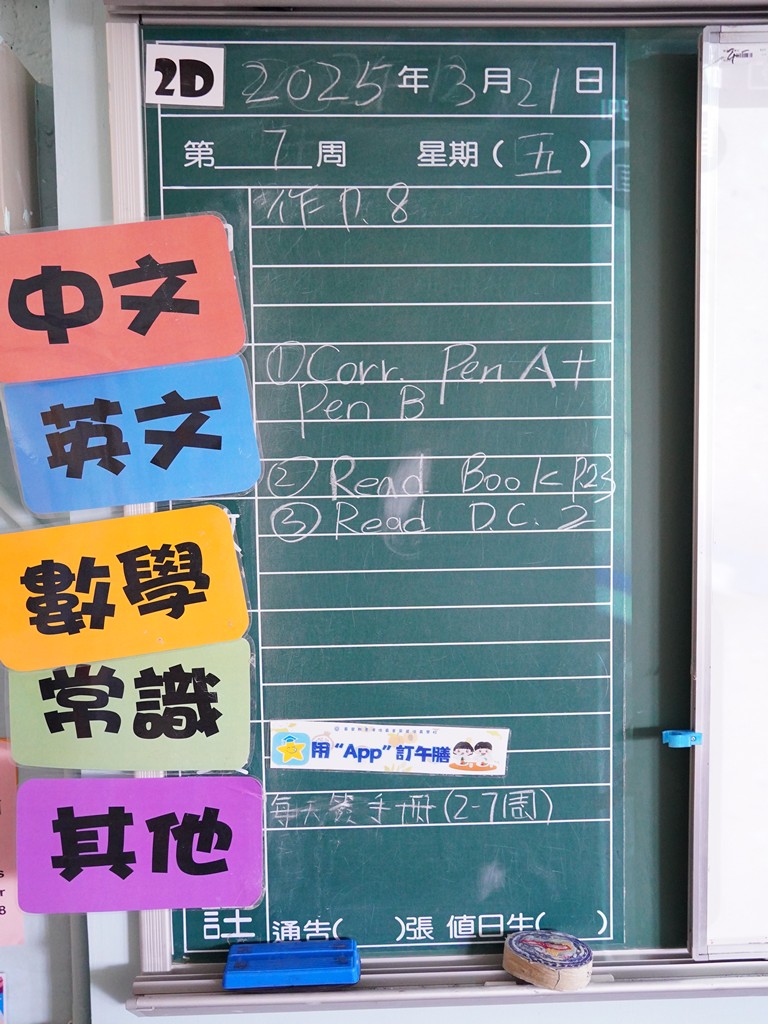 2D 2025年3月21日
第 7 周 星期(五)
作 P. 8
中文
① Corr. Pen A +
Pen B
英文
② Read Book P23
③ Read D.C. 2
數學
常識
用“App”訂午膳
每天簽手冊(2-7周)
其他
註 通告( )張 值日生( )